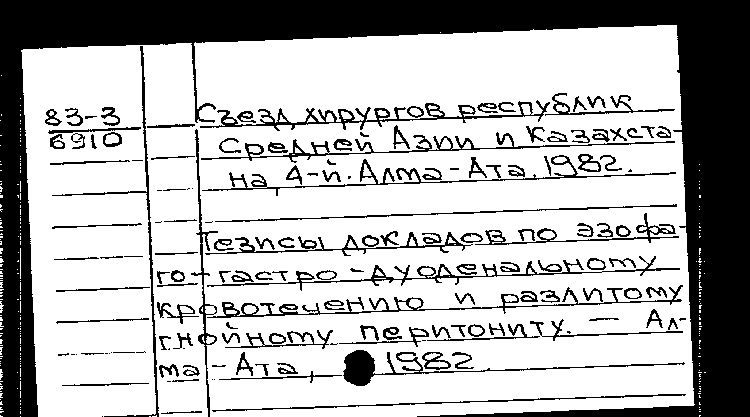 83-3 Съезд хирургов республик
6910 Средней Азии и Казахста-
на, 4-й. Алма-Ата. 1982.
Тезисы докладов по эзофа-
го-гастро-дуоденальному
кровотечению и разлитому
гнойному перитониту. — Ал-
ма-Ата, 1982.